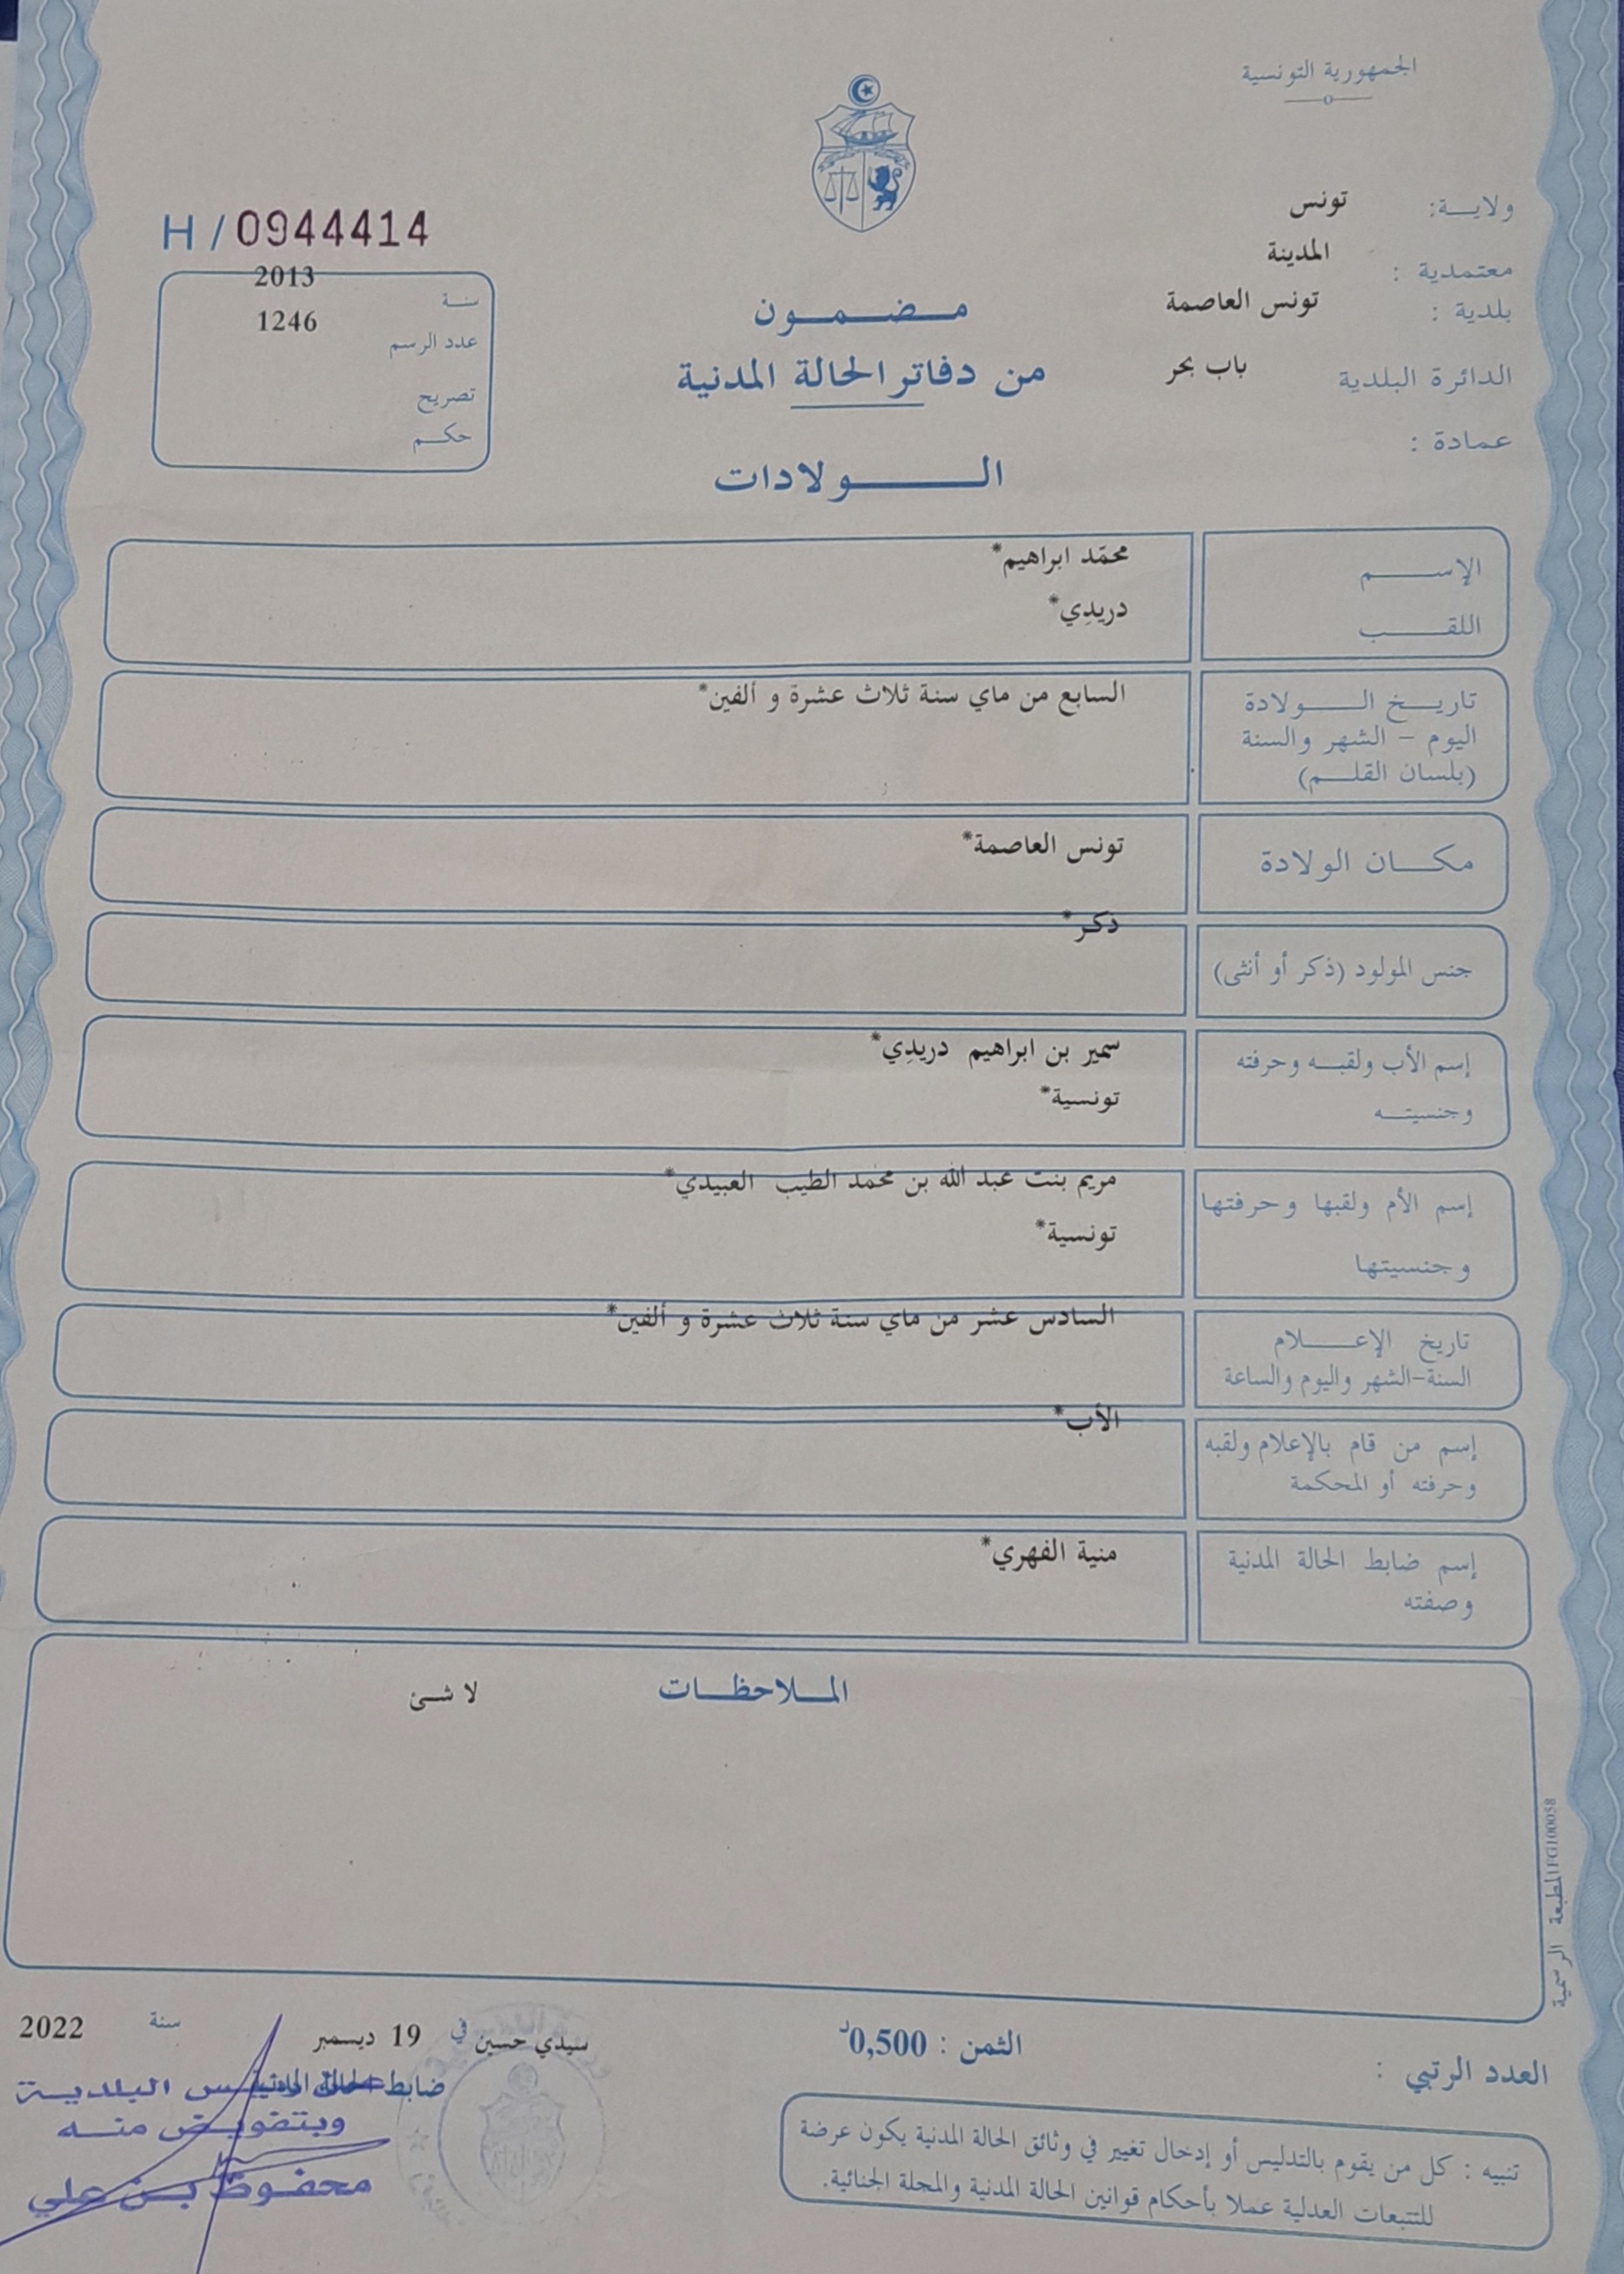 الجمهورية التونسية
ولاية: تونس
معتمدية : المدينة
بلدية : تونس العاصمة
الدائرة البلدية باب بحر
عمادة :
H / 0944414
سنة 2013
عدد الرسم 1246
تصريح
حكم
مضمون
من دفاتر الحالة المدنية
الولادات
الإسم محمّد ابراهيم*
اللقب دريدِي*
تاريخ الولادة السابع من ماي سنة ثلاث عشرة و ألفين*
اليوم - الشهر والسنة
(بلسان القلم)
مكان الولادة تونس العاصمة*
جنس المولود (ذكر أو أنثى) ذكر*
إسم الأب ولقبه وحرفته سمير بن ابراهيم دريدِي*
وجنسيته تونسية*
إسم الأم ولقبها وحرفتها مريم بنت عبد الله بن محمد الطيب العبيدي*
وجنسيتها تونسية*
تاريخ الإعلام السادس عشر من ماي سنة ثلاث عشرة و ألفين*
السنة-الشهر واليوم والساعة
إسم من قام بالإعلام ولقبه الأب*
وحرفته أو المحكمة
إسم ضابط الحالة المدنية منية الفهري*
وصفته
الملاحظات لا شئ
المطبعة الرسمية IFG100058
سيدي حسين في 19 ديسمبر سنة 2022
الثمن : 0,500د
العدد الرتبي :
ضابط الحالة المدنية
البلدية
وبتفويض منه
محفوظ بن علي
تنبيه : كل من يقوم بالتدليس أو إدخال تغيير في وثائق الحالة المدنية يكون عرضة
للتتبعات العدلية عملا بأحكام قوانين الحالة المدنية والمجلة الجنائية.